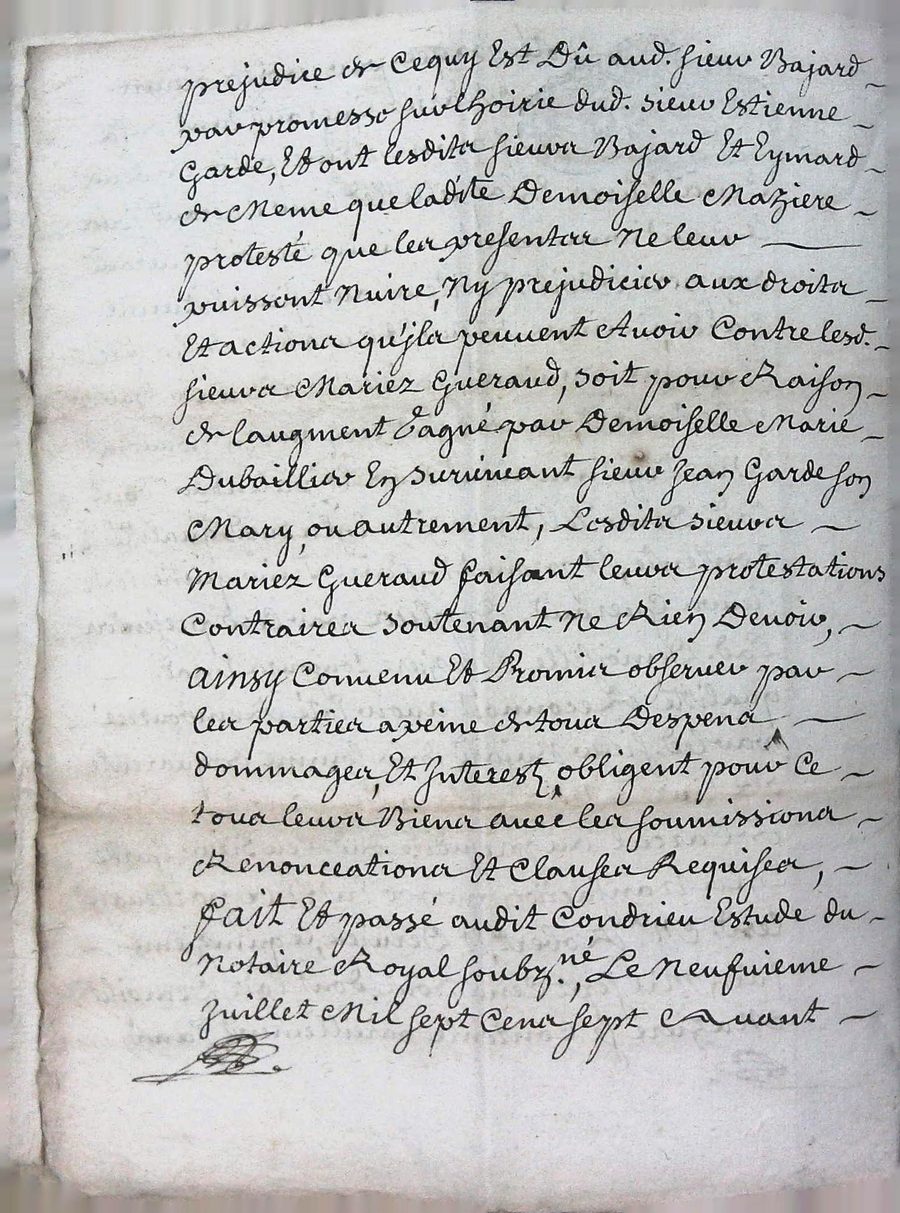 prejudice de Cequy Est Dû aud. sieur Bajard
par promesse sur lhoirie dud. sieur Estienne
Garde, Et ont lesdits sieurs Bajard Et Eymard
de Meme que ladite Demoiselle Maziere
protesté que les presentes Ne leur
puissent Nuire, Ny prejudicier aux droits
Et actions qu'jls peuvent Avoir Contre lesd.
sieurs Mariez Gueraud, soit pour Raison
de laugment gagné par Demoiselle Marie
Dubaillier En Survivant sieur Jean Garde son
Mary, ou autrement, Lesdits sieurs
Mariez Gueraud faisant leurs protestations
Contraires soutenant Ne Rien Devoir,
ainsy Convenu Et Promis observer par
les parties a peine de tous Despens
dommages, Et Interests, obligent pour Ce
tous leurs Biens avec les soumissions
Renonceations Et Clauses Requises,
fait Et passé audit Condrieu Estude du
Notaire Royal soubz.né, Le Neufuieme
Juillet Mil sept Cens sept Avant